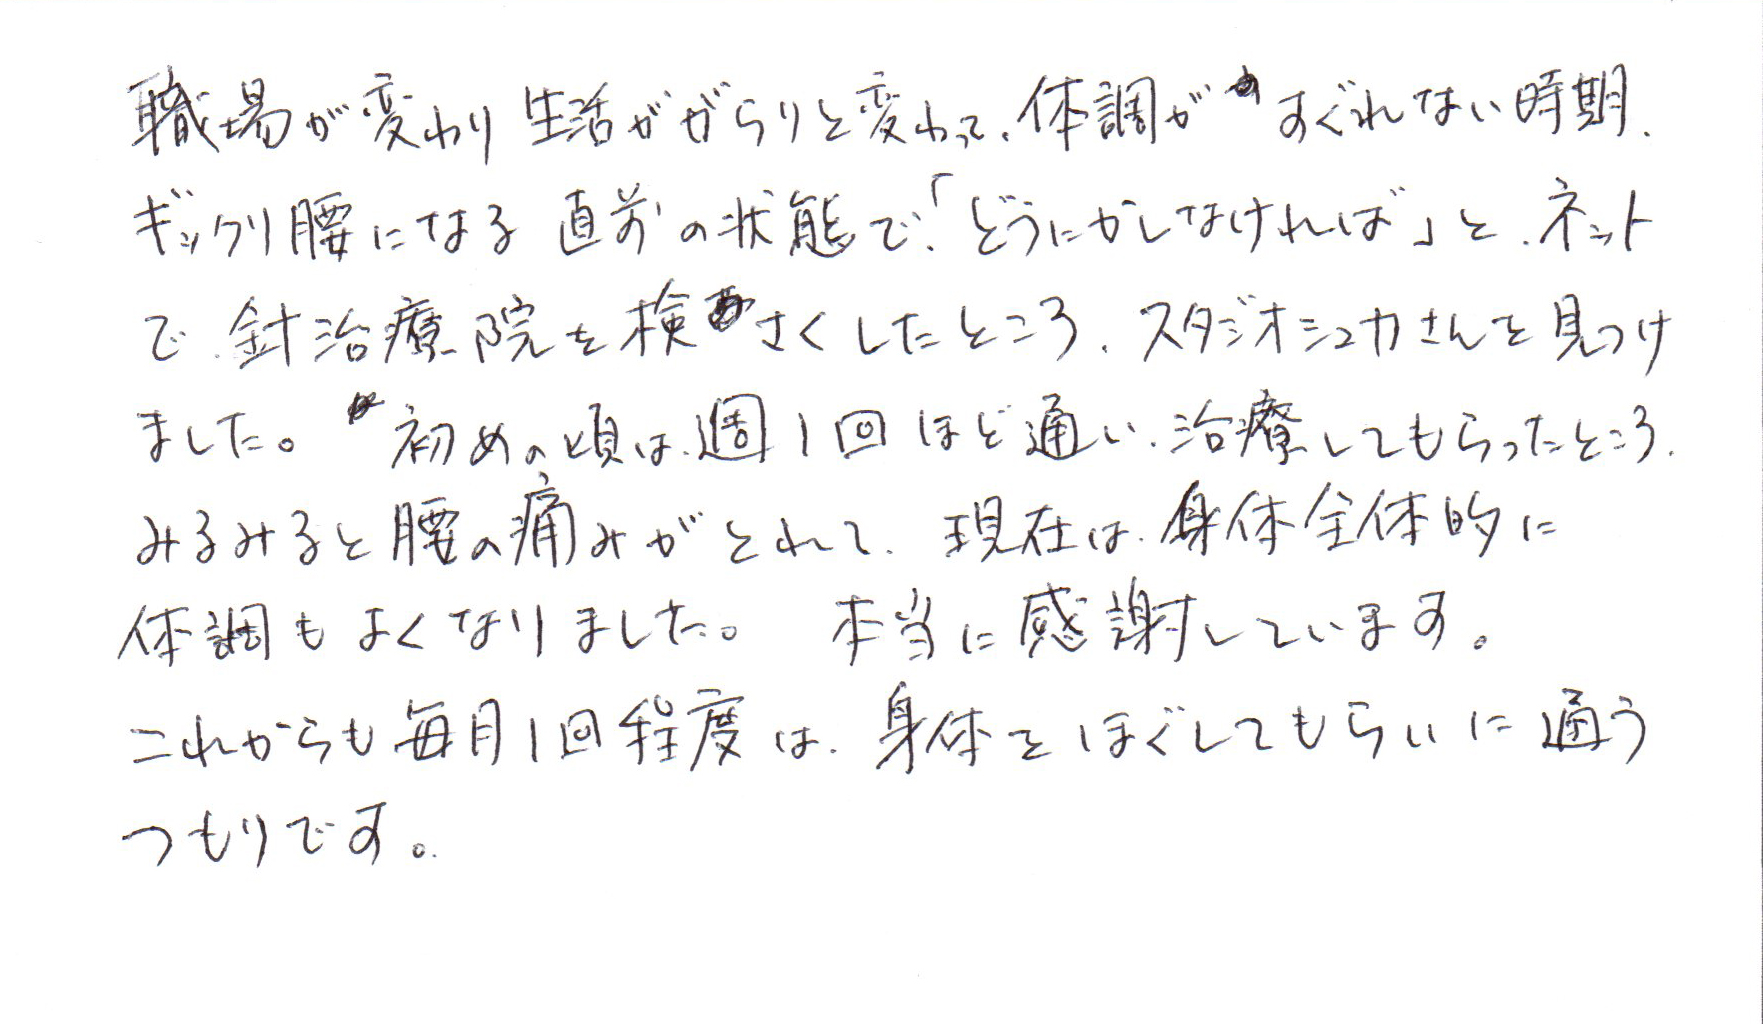 職場が変わり生活ががらりと変わって、体調がすぐれない時期、
ギックリ腰になる直前の状態で、「どうにかしなければ」と、ネット
で、針治療院を検さくしたところ、スタジオシュカさんを見つけ
ました。初めの頃は、週1回ほど通い、治療してもらったところ、
みるみると腰の痛みがとれて、現在は、身体全体的に
体調もよくなりました。本当に感謝しています。
これからも毎月1回程度は、身体をほぐしてもらいに通う
つもりです。